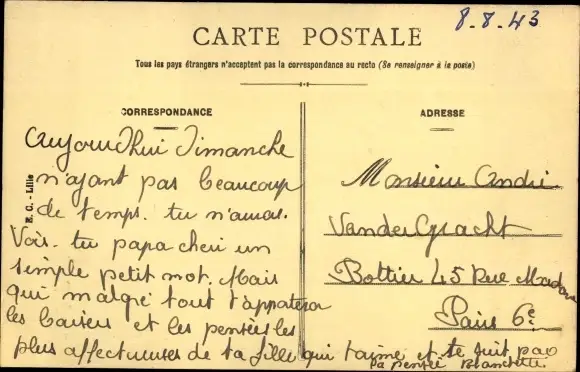 8.8.43
CARTE POSTALE
Tous les pays étrangers n'acceptent pas la correspondance au recto (Se renseigner à la poste)
CORRESPONDANCE
ADRESSE
E. C. - Lille
Aujourd'hui Dimanche
n'ayant pas beaucoup
de temps. tu n'auras.
Vois-tu papa cheri un
simple petit mot. Mais
qui malgré tout t'apportera
les baisers et les pensées les
plus affectueuses de ta fille qui t'aime et te suit par
la pensée Blanchette
Monsieur André
VanderGracht
Bottier 45 Rue Madame
Paris 6e